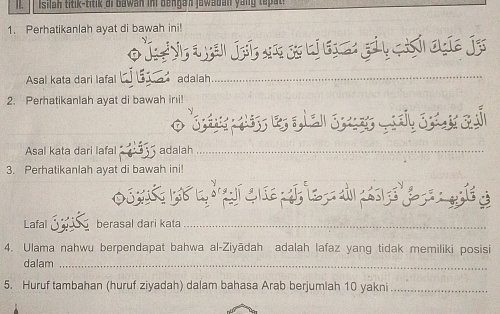 II. Isilah titik-titik di bawah ini dengan jawaban yang tepat!
1. Perhatikanlah ayat di bawah ini!
نَزَّلَ عَلَيْكَ الْكِتٰبَ بِالْحَقِّ مُصَدِّقًا لِّمَا بَيْنَ يَدَيْهِ وَاَنْزَلَ التَّوْرٰىةَ وَالْاِنْجِيْلَۙ ٣
Asal kata dari lafal مُصَدِّقًا لِّمَا adalah....
2. Perhatikanlah ayat di bawah ini!
الَّذِيْنَ يُؤْمِنُوْنَ بِالْغَيْبِ وَيُقِيْمُوْنَ الصَّلٰوةَ وَمِمَّا رَزَقْنٰهُمْ يُنْفِقُوْنَۙ ٣
Asal kata dari lafal رَزَقْنٰهُمْ adalah ....
3. Perhatikanlah ayat di bawah ini!
فِيْ قُلُوْبِهِمْ مَّرَضٌۙ فَزَادَهُمُ اللّٰهُ مَرَضًاۚ وَلَهُمْ عَذَابٌ اَلِيْمٌ ۢ ەۙ بِمَا كَانُوْا يَكْذِبُوْنَ ١٠
Lafal يَكْذِبُوْنَ berasal dari kata ....
4. Ulama nahwu berpendapat bahwa al-Ziyādah adalah lafaz yang tidak memiliki posisi
dalam ....
5. Huruf tambahan (huruf ziyadah) dalam bahasa Arab berjumlah 10 yakni ....